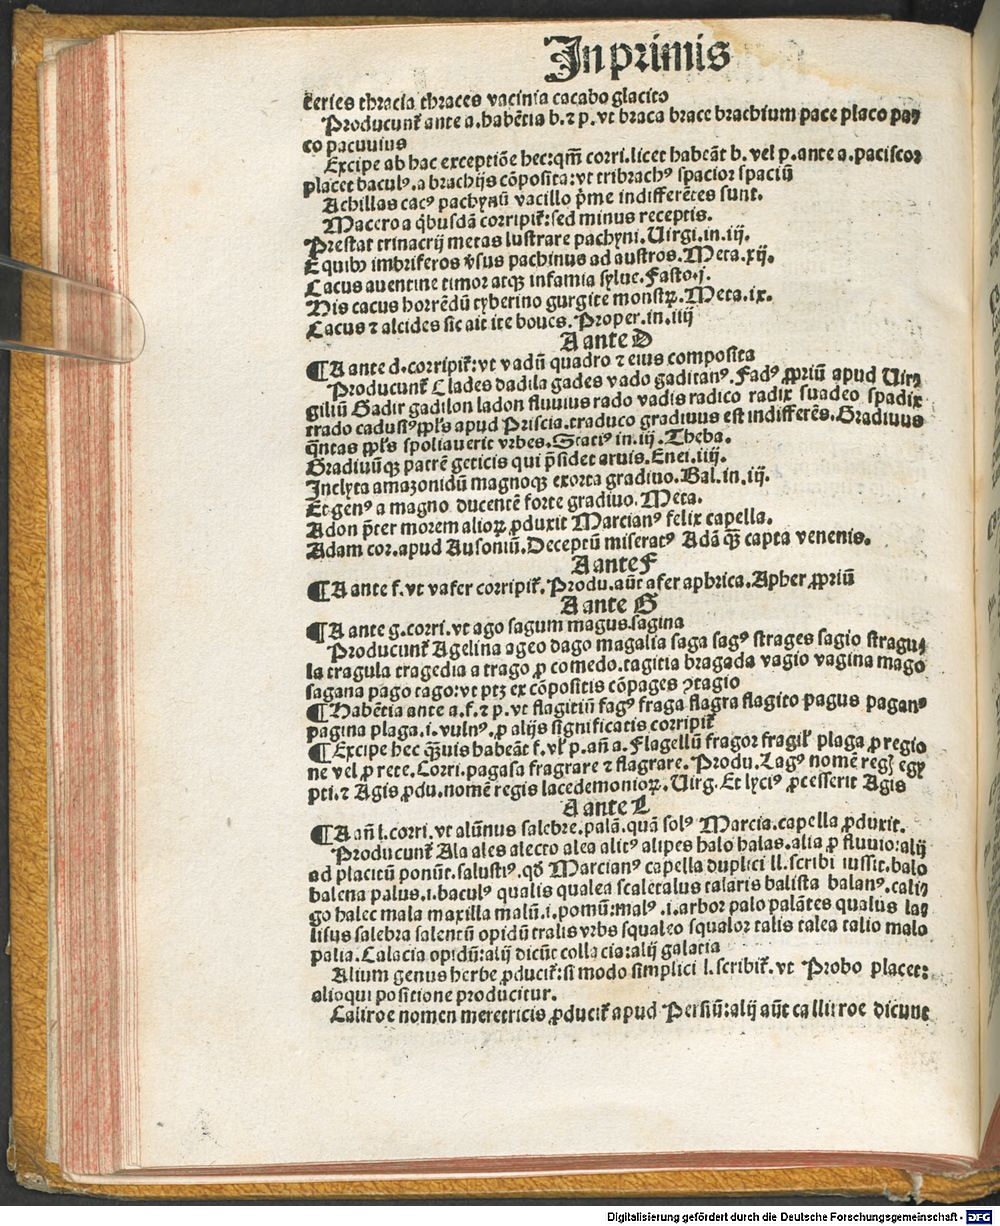 In primis
teries thracia thraces vacinia cacabo glacito
Producunt᷑ ante a. habētia b. ⁊ p. vt braca brace brachium pace placo pa⸗
co pacuuius
Excipe ab hac exceptiōe hec: qm̄ corri. licet habeāt b. vel p. ante a. paciscor
placet baculꝰ. a brachijs cōposita: vt tribrachꝰ spacior spaciū
Achillas cacꝰ pachynū vacillo p̄me indifferētes sunt.
Macero a q̇busdā corripit᷑: sed minus receptis.
Prestat trinacrij metas lustrare pachyni. Uirgi. in. iij.
E quibꝰ imbriferos v̓sus pachinus ad austros. Meta. xij.
Cacus auentine timor atqꝫ infamia sylue. Fasto. j.
His cacus horrēdū tyberino gurgite monstꝝ. Meta. ix.
Cacus ⁊ alcides sic ait ite boues. Proper. in. iiij
A ante D
¶ A ante d. corripit᷑: vt vadū quadro ⁊ eius composita
Producunt᷑ Clades dadila gades vado gaditanꝰ. Fadꝰ ꝓpriū apud Uir⸗
giliū Gadir gadilon ladon fluuius rado vadis radico radix suadeo spadix
trado cadusiꝰ ppl̓s apud Priscia. traduco gradiuus est indifferēs. Gradiuus
q̄ntas ppl̓s spoliauerit vrbes. Staciꝰ in. iij. Theba.
Gradiuūqꝫ patrē geticis qui p̄sidet aruis. Enei. iij.
Inclyta amazonidū magnoqꝫ exorta gradiuo. Bal. in. ij.
Et genꝰ a magno ducentē forte gradiuo. Meta.
Adon p̄ter morem alioꝝ ꝓduxit Marcianꝰ felix capella.
Adam cor. apud Ausoniū. Deceptū miseratꝰ Adā q̄ꝫ capta venenis.
A ante F
¶ A ante f. vt vafer corripit᷑. Produ. aūt afer aphrica. Apher ꝓpriū
A ante G
¶ A ante g. corri. vt ago sagum magus. sagina
Producunt᷑ Agelina ageo dago magalia saga sagꝰ strages sagio stragu⸗
la tragula tragedia a trago ꝓ comedo. tagitia bragada vagio vagina mago
sagana pago tago: vt ptꝫ ex cōpositis cōpages ꝯtagio
¶ Habētia ante a. f. ⁊ p. vt flagitiū fagꝰ fraga flagra flagito pagus paganꝰ
pagina plaga. i. vulnꝰ. ꝓ alijs significatis corripit᷑
¶ Excipe hec q̄ꝫuis habeāt f. vl̓ p. an̄ a. Flagellū fragor fragil̓ plaga ꝓ regio
ne vel ꝓ rete. Corri. pagasa fragrare ⁊ flagrare. Produ. Lagꝰ nomē regꝭ egy
pti. ⁊ Agis ꝓdu. nomē regis lacedemonioꝝ. Uirg. Et lyciꝰ ꝓcesserit Agis
A ante L
¶ A an̄ l. corri. vt alūnus salebre. palā. quā solꝰ Marcia. capella ꝓduxit.
Producunt᷑ Ala ales alecto alea alitꝰ alipes halo halas. alia ꝓ fluuio: alij
ad placitū ponūt. salustiꝰ. qđ Marcianꝰ capella duplici ll. scribi iussit. balo
balena palus. i. baculꝰ qualis qualea scaletalus talaris balista balanꝰ. cali⸗
go halec mala maxilla malū. i. pomū: malꝰ. i. arbor palo palātes qualus la⸗
lisus salebra salentū opidū tralis vrbs squaleo squalor talis talea talio malo
palia. Calacia opidū: alij dicūt collacia: alij galatia
Alium genus herbe ꝓducit᷑: si modo simplici l. scribit᷑. vt Probo placet:
alioqui positione producitur.
Caliroe nomen meretricis ꝓducit᷑ apud Persiū: alij aūt callirroe dicunt
Digitalisierung gefördert durch die Deutsche Forschungsgemeinschaft - DFG